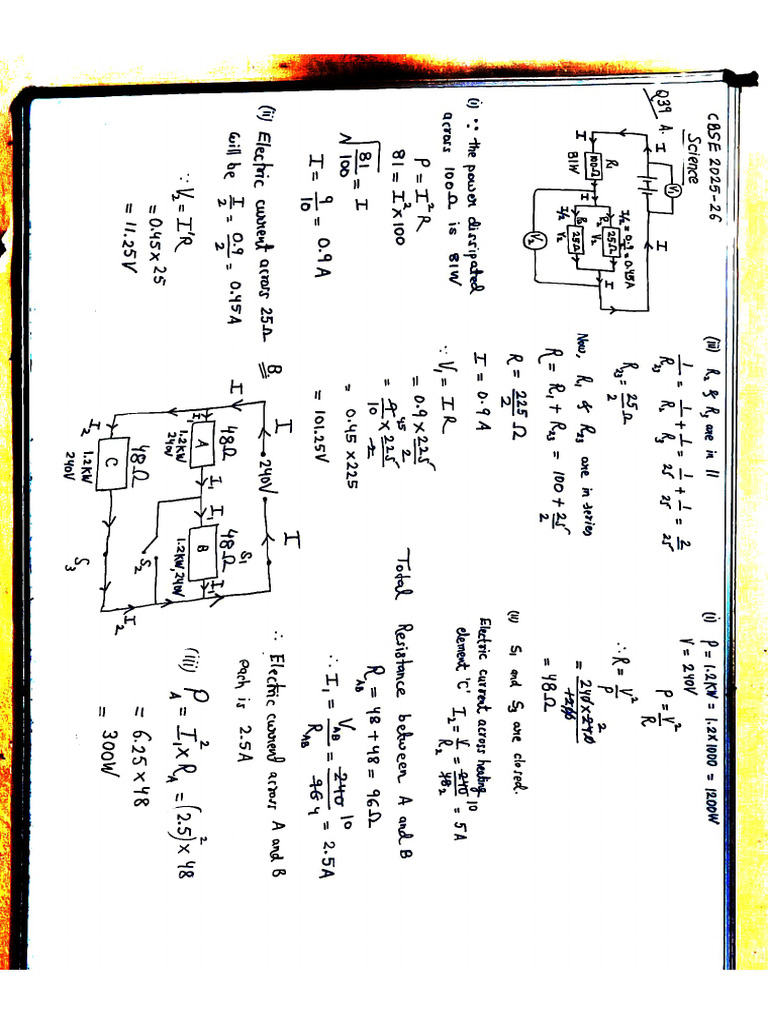 CBSE 2025-26
Science
Q39 A.
I
V₁
I
R₁
100Ω
81W
I
I
I/2 = 0.9/2 = 0.45A
R₂
25Ω
V₂
I
R₃
25Ω
I/2
V₂
V₂
(i) ∵ the power dissipated
across 100Ω is 81W
P = I²R
81 = I² × 100
√81/100 = I
I = 9/10 = 0.9A
(ii) Electric current across 25Ω
will be I/2 = 0.9/2 = 0.45A
∵ V₂ = I'R
= 0.45 × 25
= 11.25V
(iii) R₂ & R₃ are in ||
1/R₂₃ = 1/R₂ + 1/R₃ = 1/25 + 1/25 = 2/25
R₂₃ = 25/2 Ω
Now, R₁ & R₂₃ are in series
R = R₁ + R₂₃ = 100 + 25/2
R = 225/2 Ω
I = 0.9A
∵ V₁ = IR
= 0.9 × 225/2
= 9/10 × 225/2
= 0.45 × 225
= 101.25V
B.
I
240V
I
I
I₁
48Ω
A
1.2KW
240V
I₁
I₁
48Ω
S₁
B
1.2KW, 240V
I₁
S₂
I₂
48Ω
C
1.2KW
240V
S₃
I₂
(i) P = 1.2KW = 1.2 × 1000 = 1200W
V = 240V
P = V²/R
∴ R = V²/P
= 240 × 240/1200
= 48Ω
(ii) S₁ and S₃ are closed.
Electric current across heating
element 'C' I₂ = V/R₂ = 240/48 = 5A
Total Resistance between A and B
R_AB = 48 + 48 = 96Ω
∴ I₁ = V_AB/R_AB = 240/96 = 10/4 = 2.5A
∴ Electric current across A and B
each is 2.5A
(iii) P_A = I₁² × R_A = (2.5)² × 48
= 6.25 × 48
= 300W